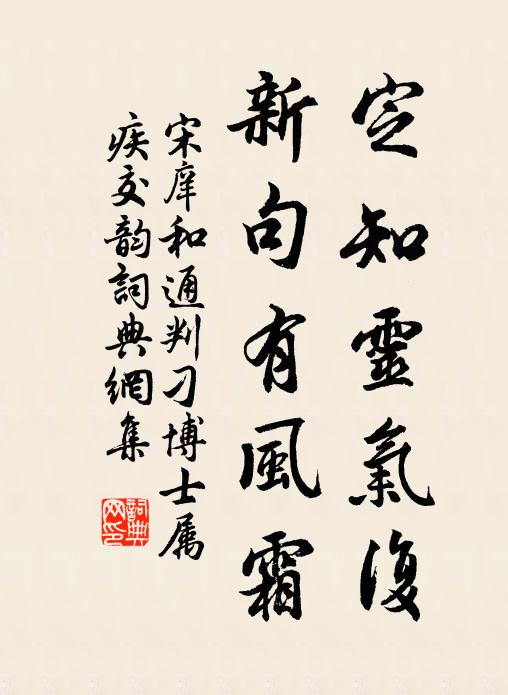 定知靈氣復
新句有風霜
宋庠和通判刁博士属
疾交韵詞典網集
詞典
网印